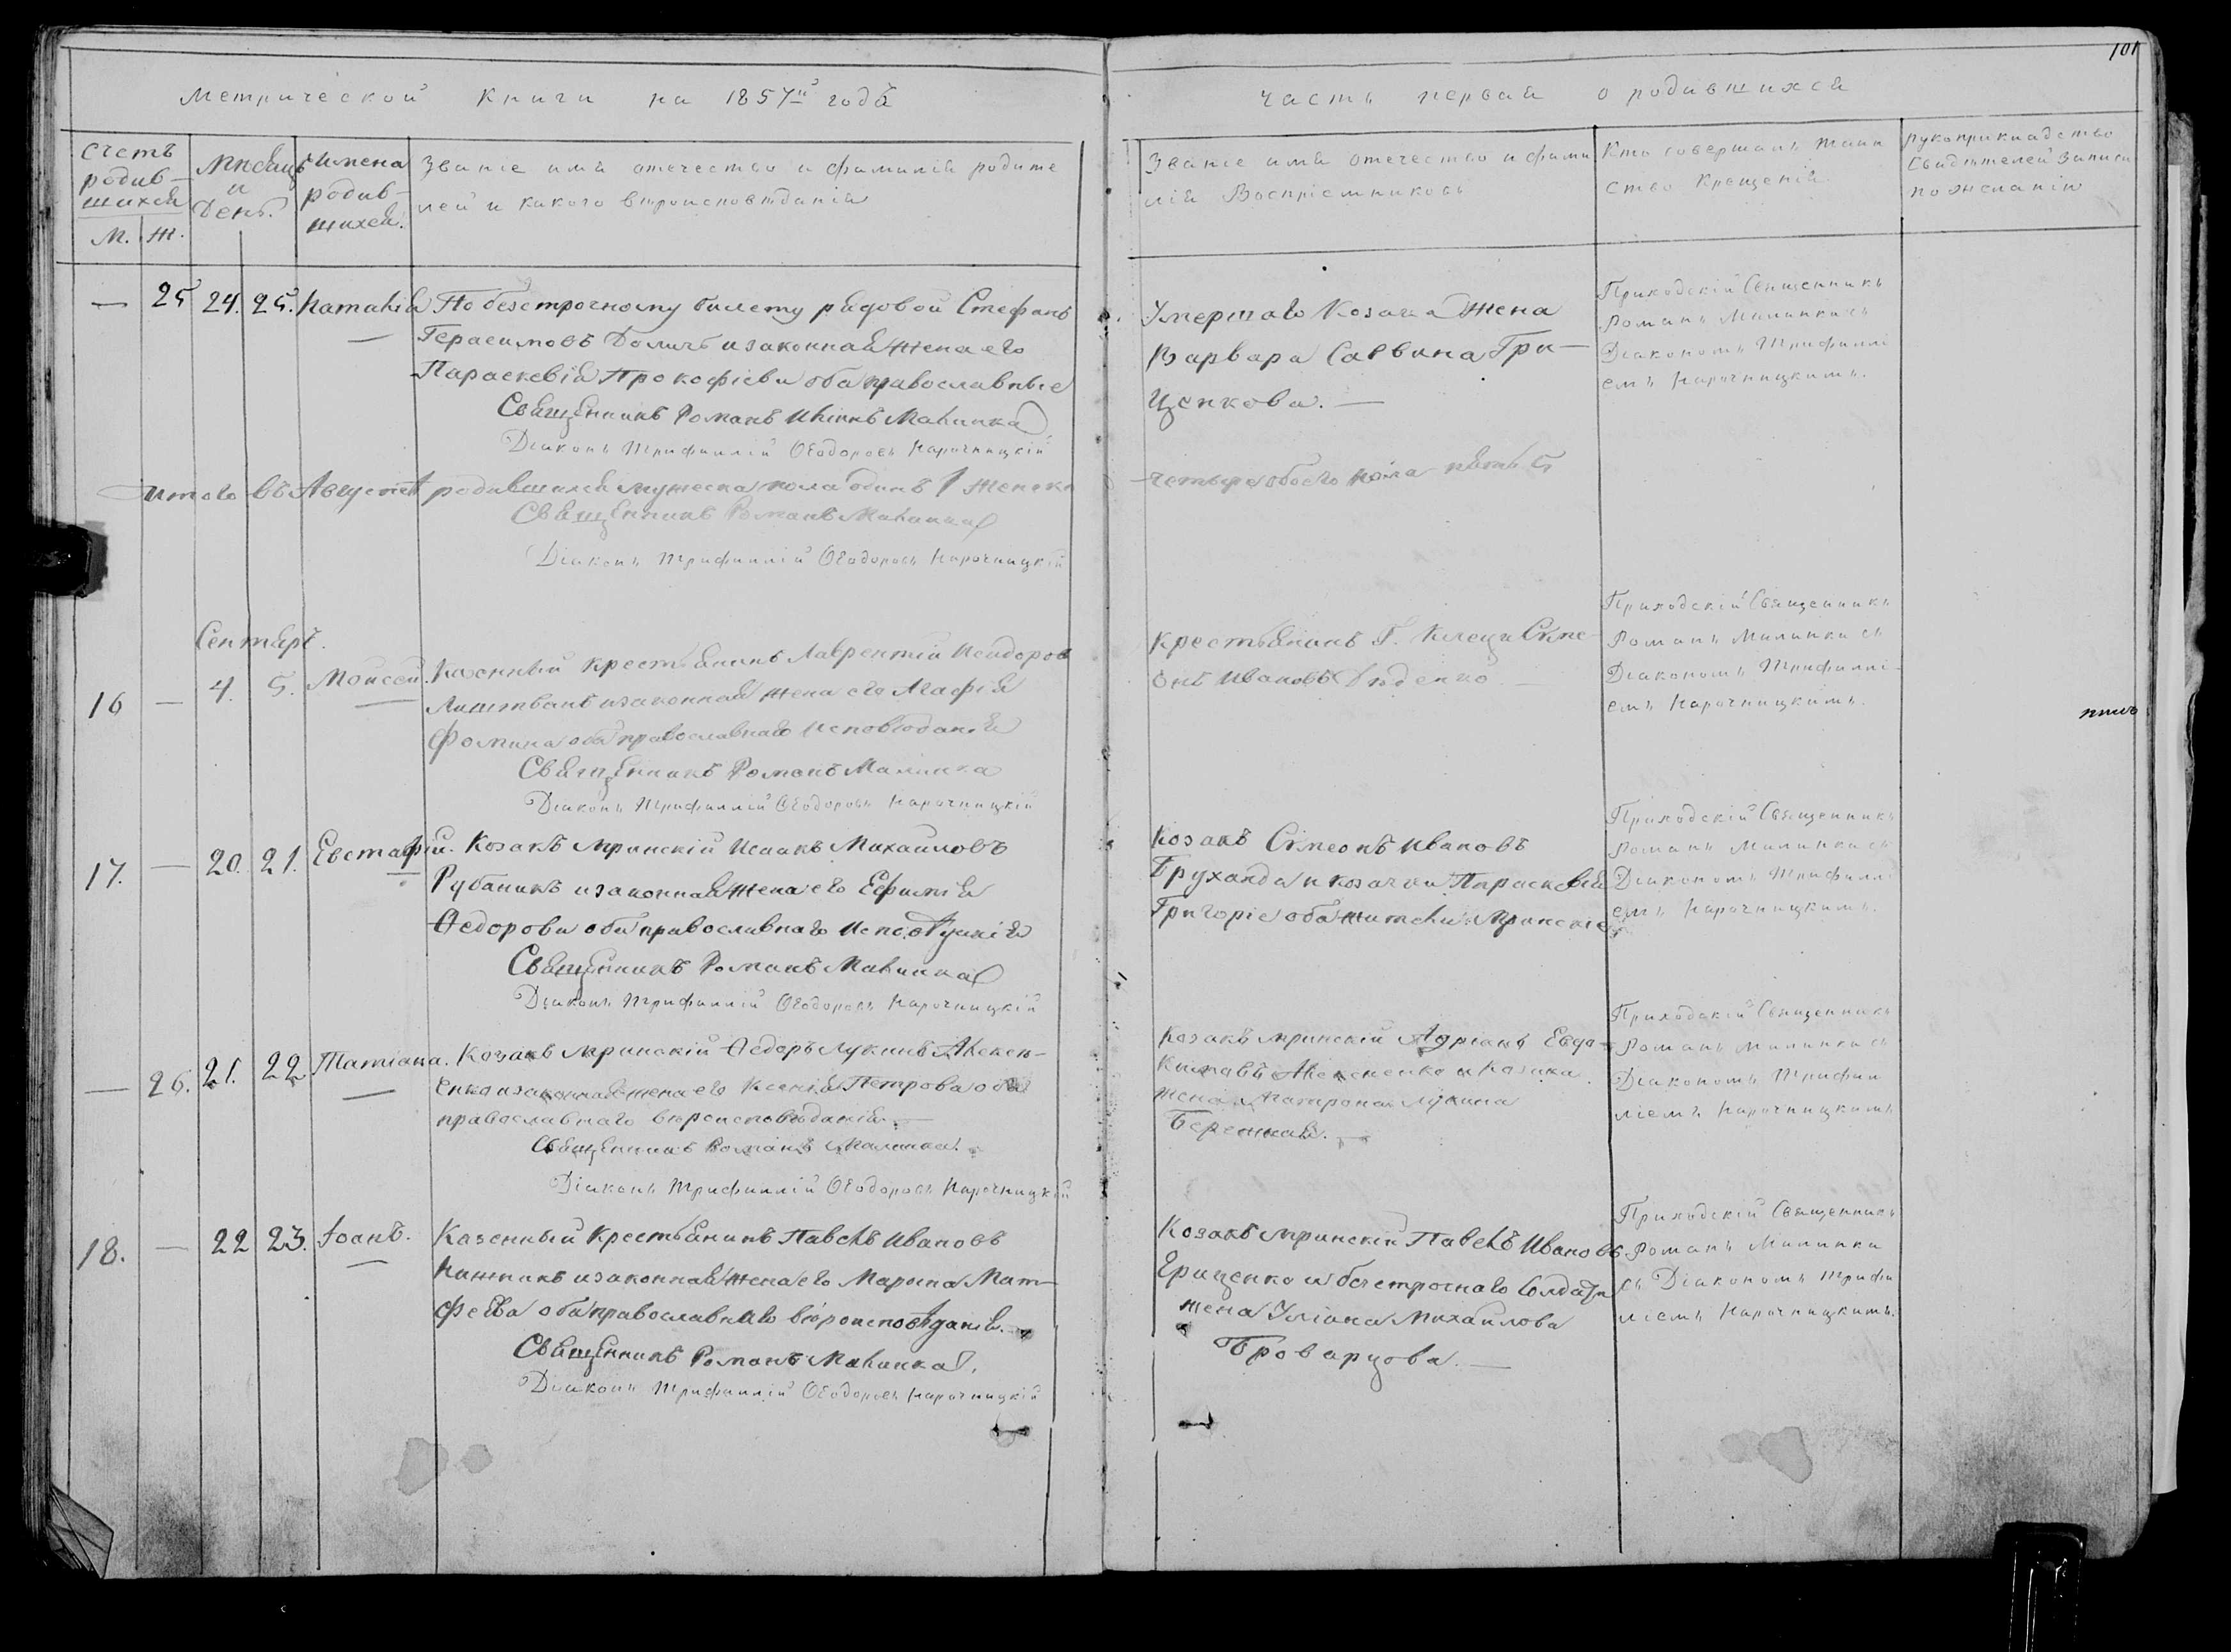 101
Метрической Книги на 1857й года
Часть первая о родившихся
Счетъ родив-шихся
М. Ж.
Мѣсяцъ и День.
Имена родив-шихся.
Званіе имя отечество и фамилія родите
лей и какого вѣроисповѣданія
Званіе имя отечество и фами
лія Воспріемниковъ
Кто совершалъ таин
ство Крещенія
Рукоприкладство
Свидѣтелей записи
по желанію
— 25 24. 25. Наталія
По безсрочному билету рядовой Стефанъ
Герасимовъ и законная жена его
Параскевія Прокофіева оба православные
Священникъ Романъ Малинка
Діаконъ Трифиллій Ѳеодоровъ Нарочницкій
Умершаго Козака жена
Варвара Саввина Гри-
ценкова. —
Приходскій Священникъ
Романъ Малинка съ
Діакономъ Трифиллі
емъ Нарочницкимъ.
Итого въ Августѣ родившихся мужеска пола одинъ 1 женска
четыре обоего пола пять 5
Священникъ Романъ Малинка
Діаконъ Трифиллій Ѳеодоровъ Нарочницкій
Сентябрь.
16 — 4. 5. Моисей.
Казенный крестьянинъ Лаврентій Исидоров
Лиштванъ и законная жена его Агафія
Фомина оба православнаго исповѣданія
Священникъ Романъ Малинка
Діаконъ Трифиллій Ѳеодоровъ Нарочницкій
Крестьянинъ Г. Симе-
онъ Ивановъ —
Приходскій Священникъ
Романъ Малинка съ
Діакономъ Трифиллі-
емъ Нарочницкимъ.
17. — 20. 21. Евстафій.
Козакъ мринскій Исаакъ Михайловъ
Рубаникъ и законная жена его Ефимія
Ѳедорова оба православнаго исповѣданія
Священникъ Романъ Малинка
Діаконъ Трифиллій Ѳеодоровъ Нарочницкій
Козакъ Симеонъ Ивановъ
Бруханда и козачка Параскевія
Григоріе оба жители мринскіе
Приходскій Священникъ
Романъ Малинка съ
Діакономъ Трифиллі
емъ Нарочницкимъ.
— 26. 21. 22 Татіана.
Козакъ мринскій Ѳедоръ Лукинъ Алексе-
енко и законная жена его Ксенія Петрова оба
православнаго вѣроисповѣданія. —
Священникъ Романъ Малинка.
Діаконъ Трифиллій Ѳеодоровъ Нарочницкій
Козакъ мринскій Адріанъ Евдо-
кимовъ Алексеенко и Козака
жена Матрона Лукина
Бережная. —
Приходскій Священникъ
Романъ Малинка съ
Діакономъ Трифил
ліемъ Нарочницкимъ
18. — 22 23. Іоанъ.
Казенный крестьянинъ Павелъ Ивановъ
и законная жена его Марина Мат-
феева оба православнаго вѣроисповѣданія. —
Священникъ Романъ Малинка.
Діаконъ Трифиллій Ѳеодоровъ Нарочницкій
Козакъ мринскій Павелъ Ивановъ
Грищенко и безсрочнаго Солдата
жена Уліана Михайлова
Броварцова. —
Приходскій Священникъ
Романъ Малинка
съ Діакономъ Трифи
ліемъ Нарочницкимъ.